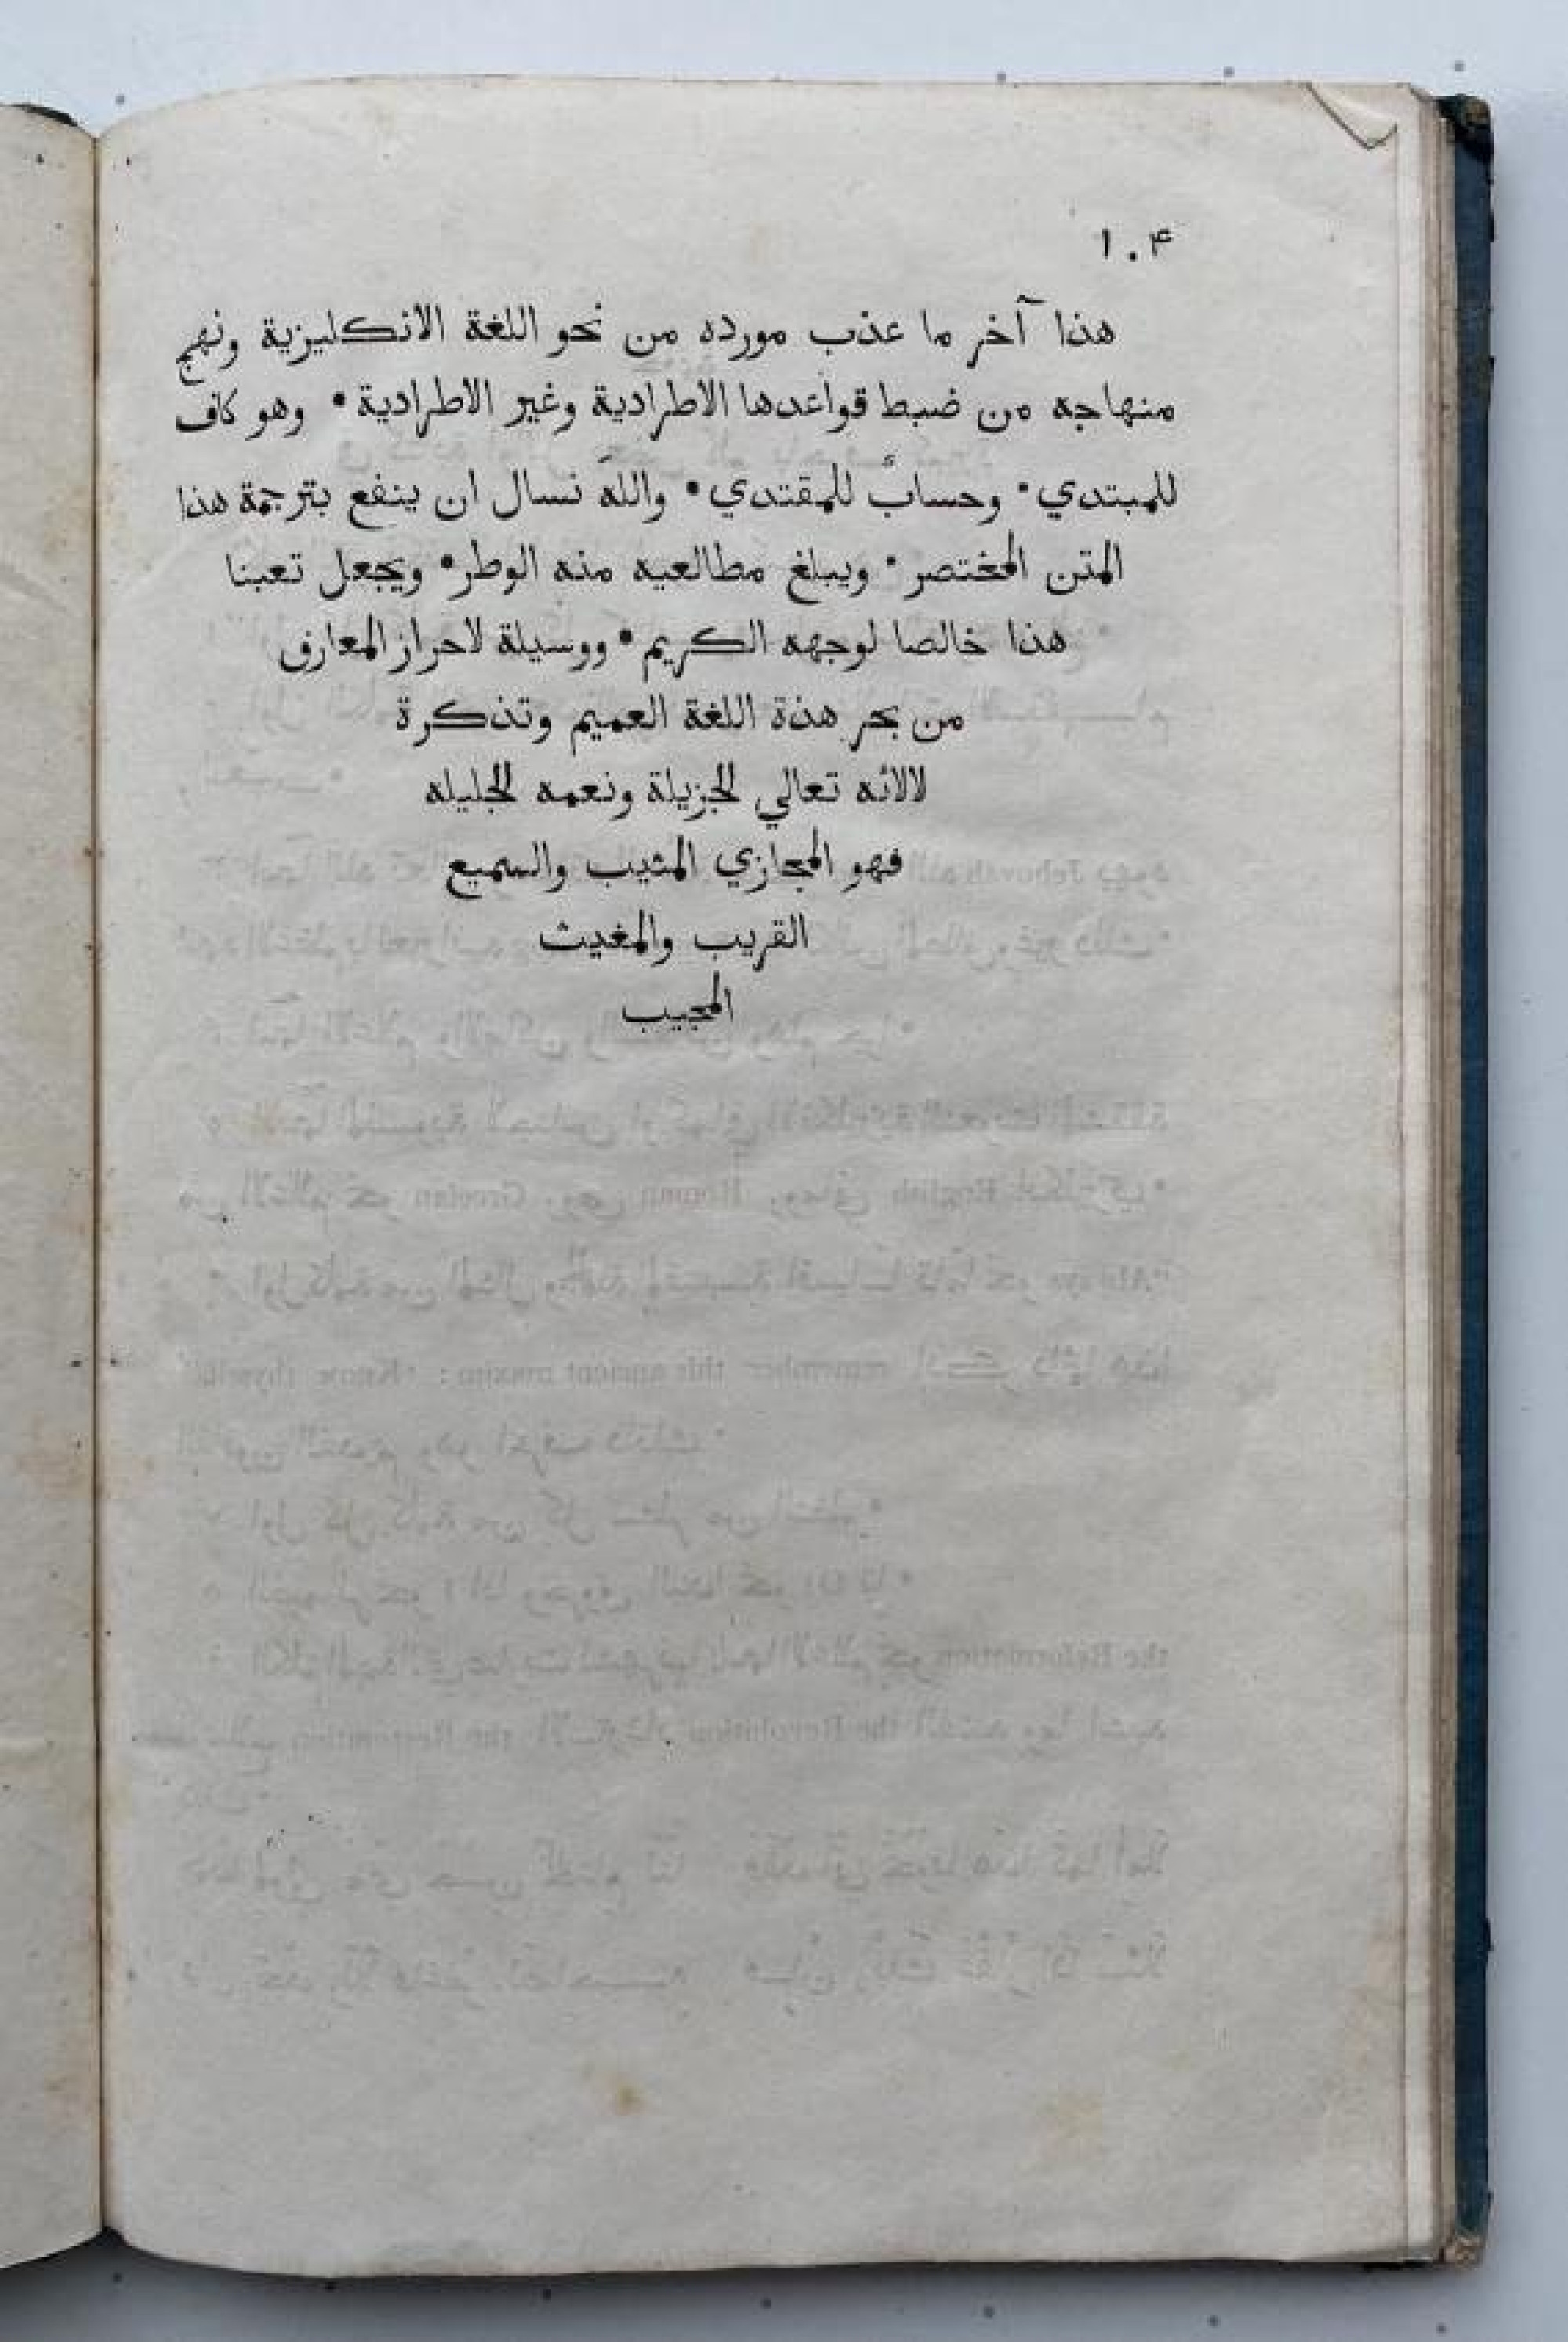 ١٠۴
هذا آخر ما عذب مورده من نحو اللغة الانكليزية ونهج
منهاجه من ضبط قواعدها الاطرادية وغير الاطرادية • وهو كاف
للمبتدي • وحسابٌ للمقتدي • واللهَ نسال ان ينفع بترجمة هذا
المتن المختصر • ويبلغ مطالعيه منه الوطر • ويجعل تعبنا
هذا خالصا لوجهه الكريم • ووسيلة لاحراز المعارف
من بحر هذة اللغة العميم وتذكرة
لالائه تعالي الجزيلة ونعمه الجليله
فهو المجازي المثيب والسميع
القريب والمغيث
المجيب